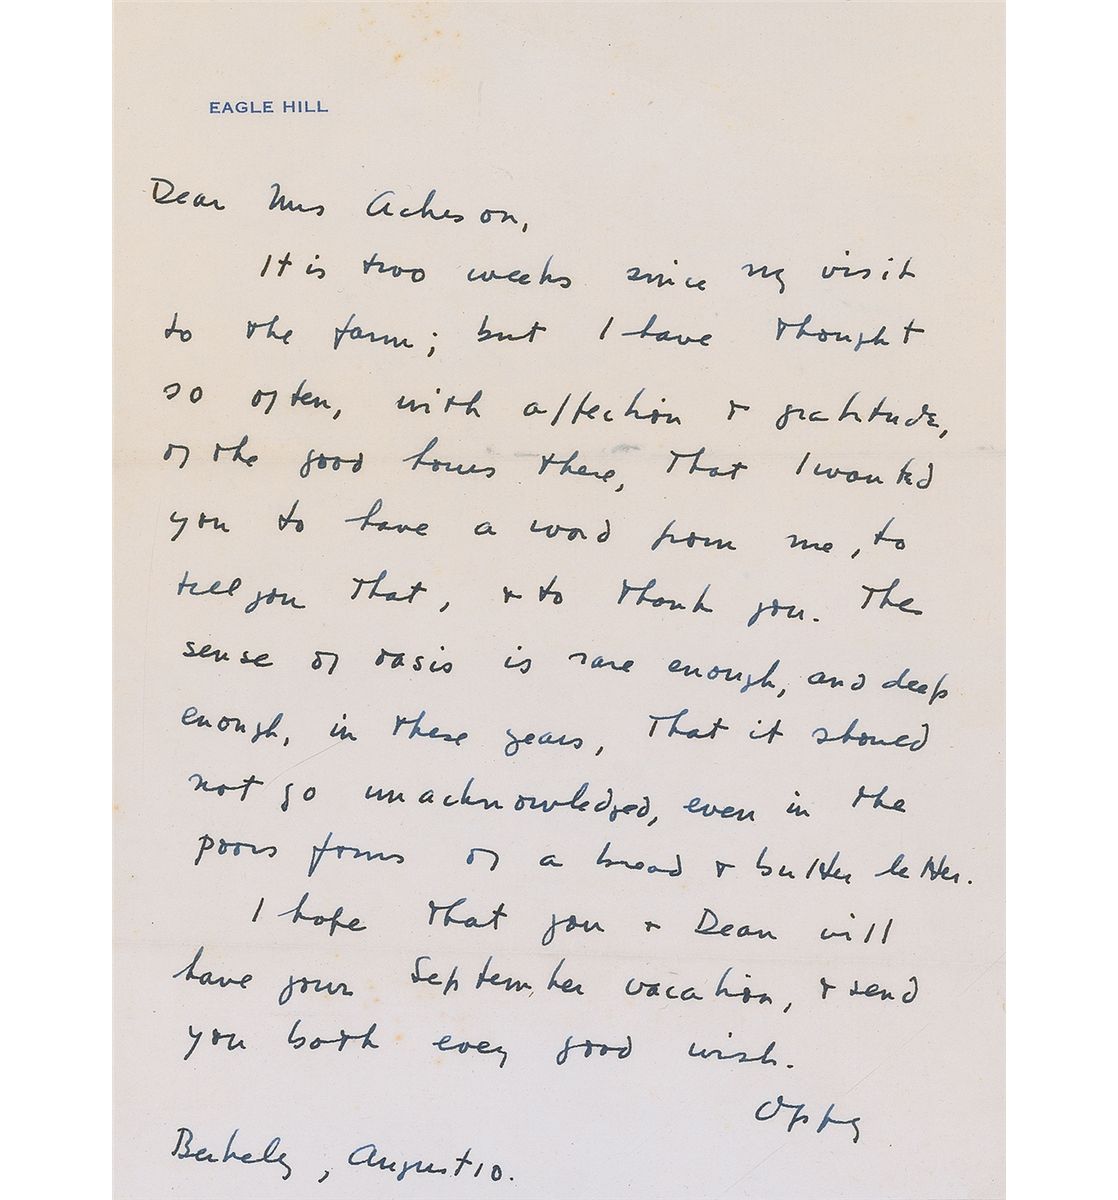 EAGLE HILL
Dear Mrs Acheson,
It is two weeks since my visit
to the farm; but I have thought
so often, with affection & gratitude,
of the good hours there, that I wanted
you to have a word from me, to
tell you that, & to thank you. The
sense of oasis is rare enough, and deep
enough, in these years, that it should
not go unacknowledged, even in the
poors forms of a bread & butter letter.
I hope that you & Dean will
have your September vacation, & send
you both every good wish.
Oppy
Berkeley, August 10.